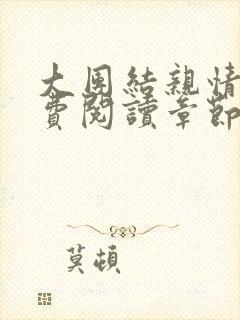 大團結親情
費閱讀章節
莫頓